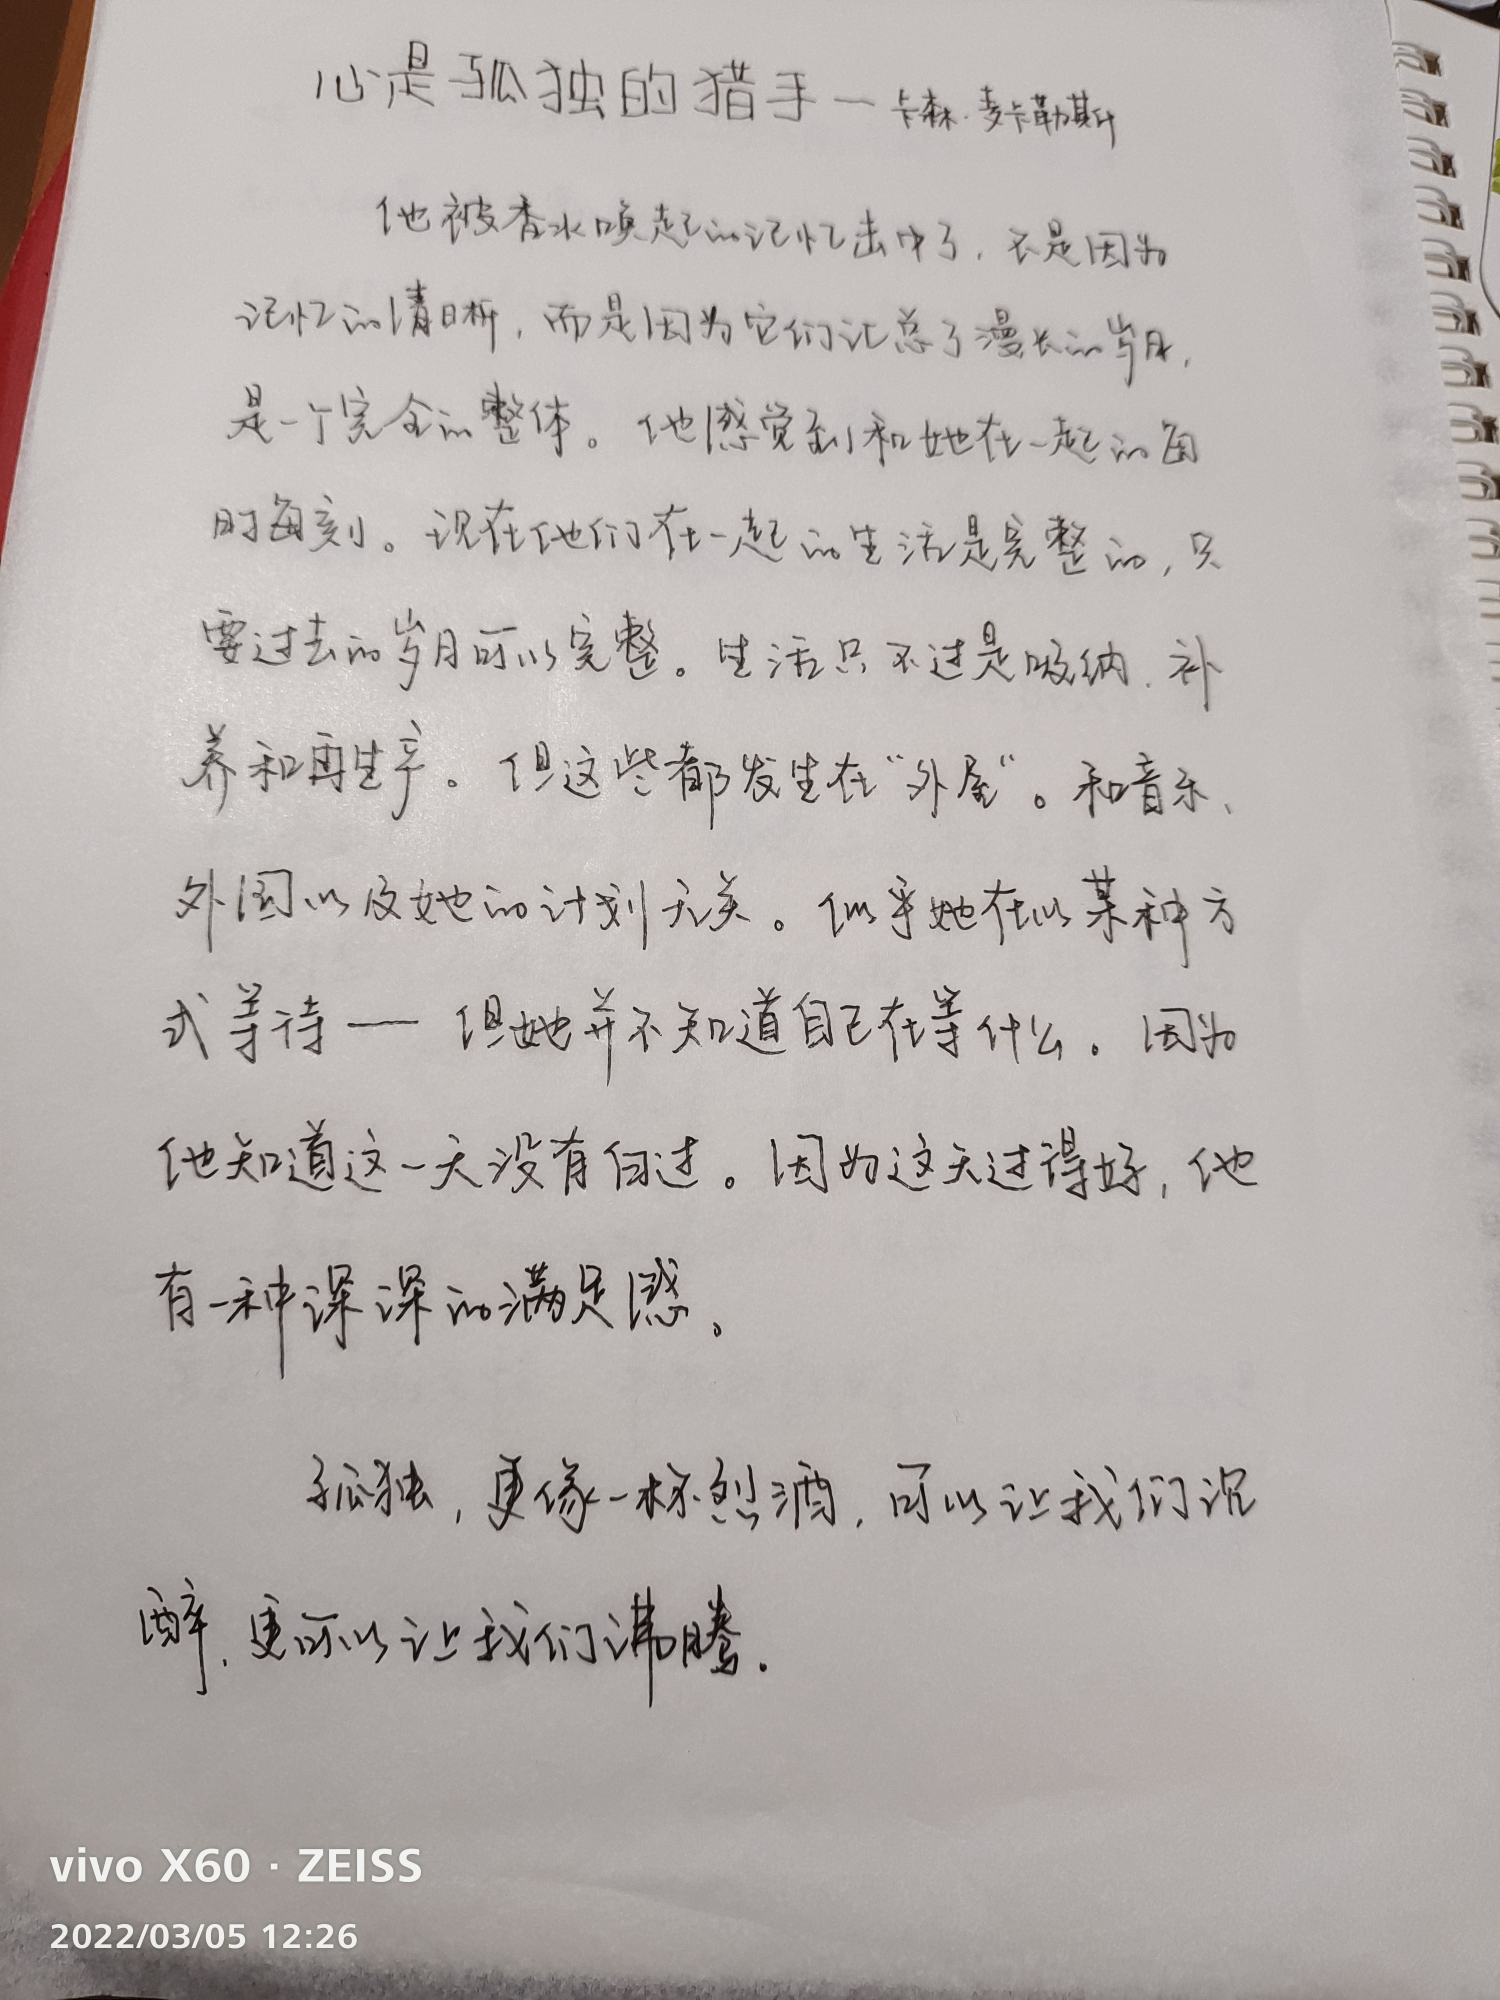 心是孤独的猎手—卡森·麦卡勒斯
他被香水唤起的记忆击中了，不是因为
记忆的清晰，而是因为它们汇总了漫长的岁月，
是一个完全的整体。他感觉到和她在一起的每
时每刻。现在他们在一起的生活是完整的，只
要过去的岁月可以完整。生活只不过是吸纳、补
养和再生产。但这些都发生在“外屋”。和音乐、
外国以及她的计划无关。似乎她在以某种方
式等待——但她并不知道自己在等什么。因为
他知道这一天没有白过。因为这天过得好，他
有一种深深的满足感。
孤独，更像一杯烈酒，可以让我们沉
醉，更可以让我们沸腾。
vivo X60 · ZEISS
2022/03/05 12:26